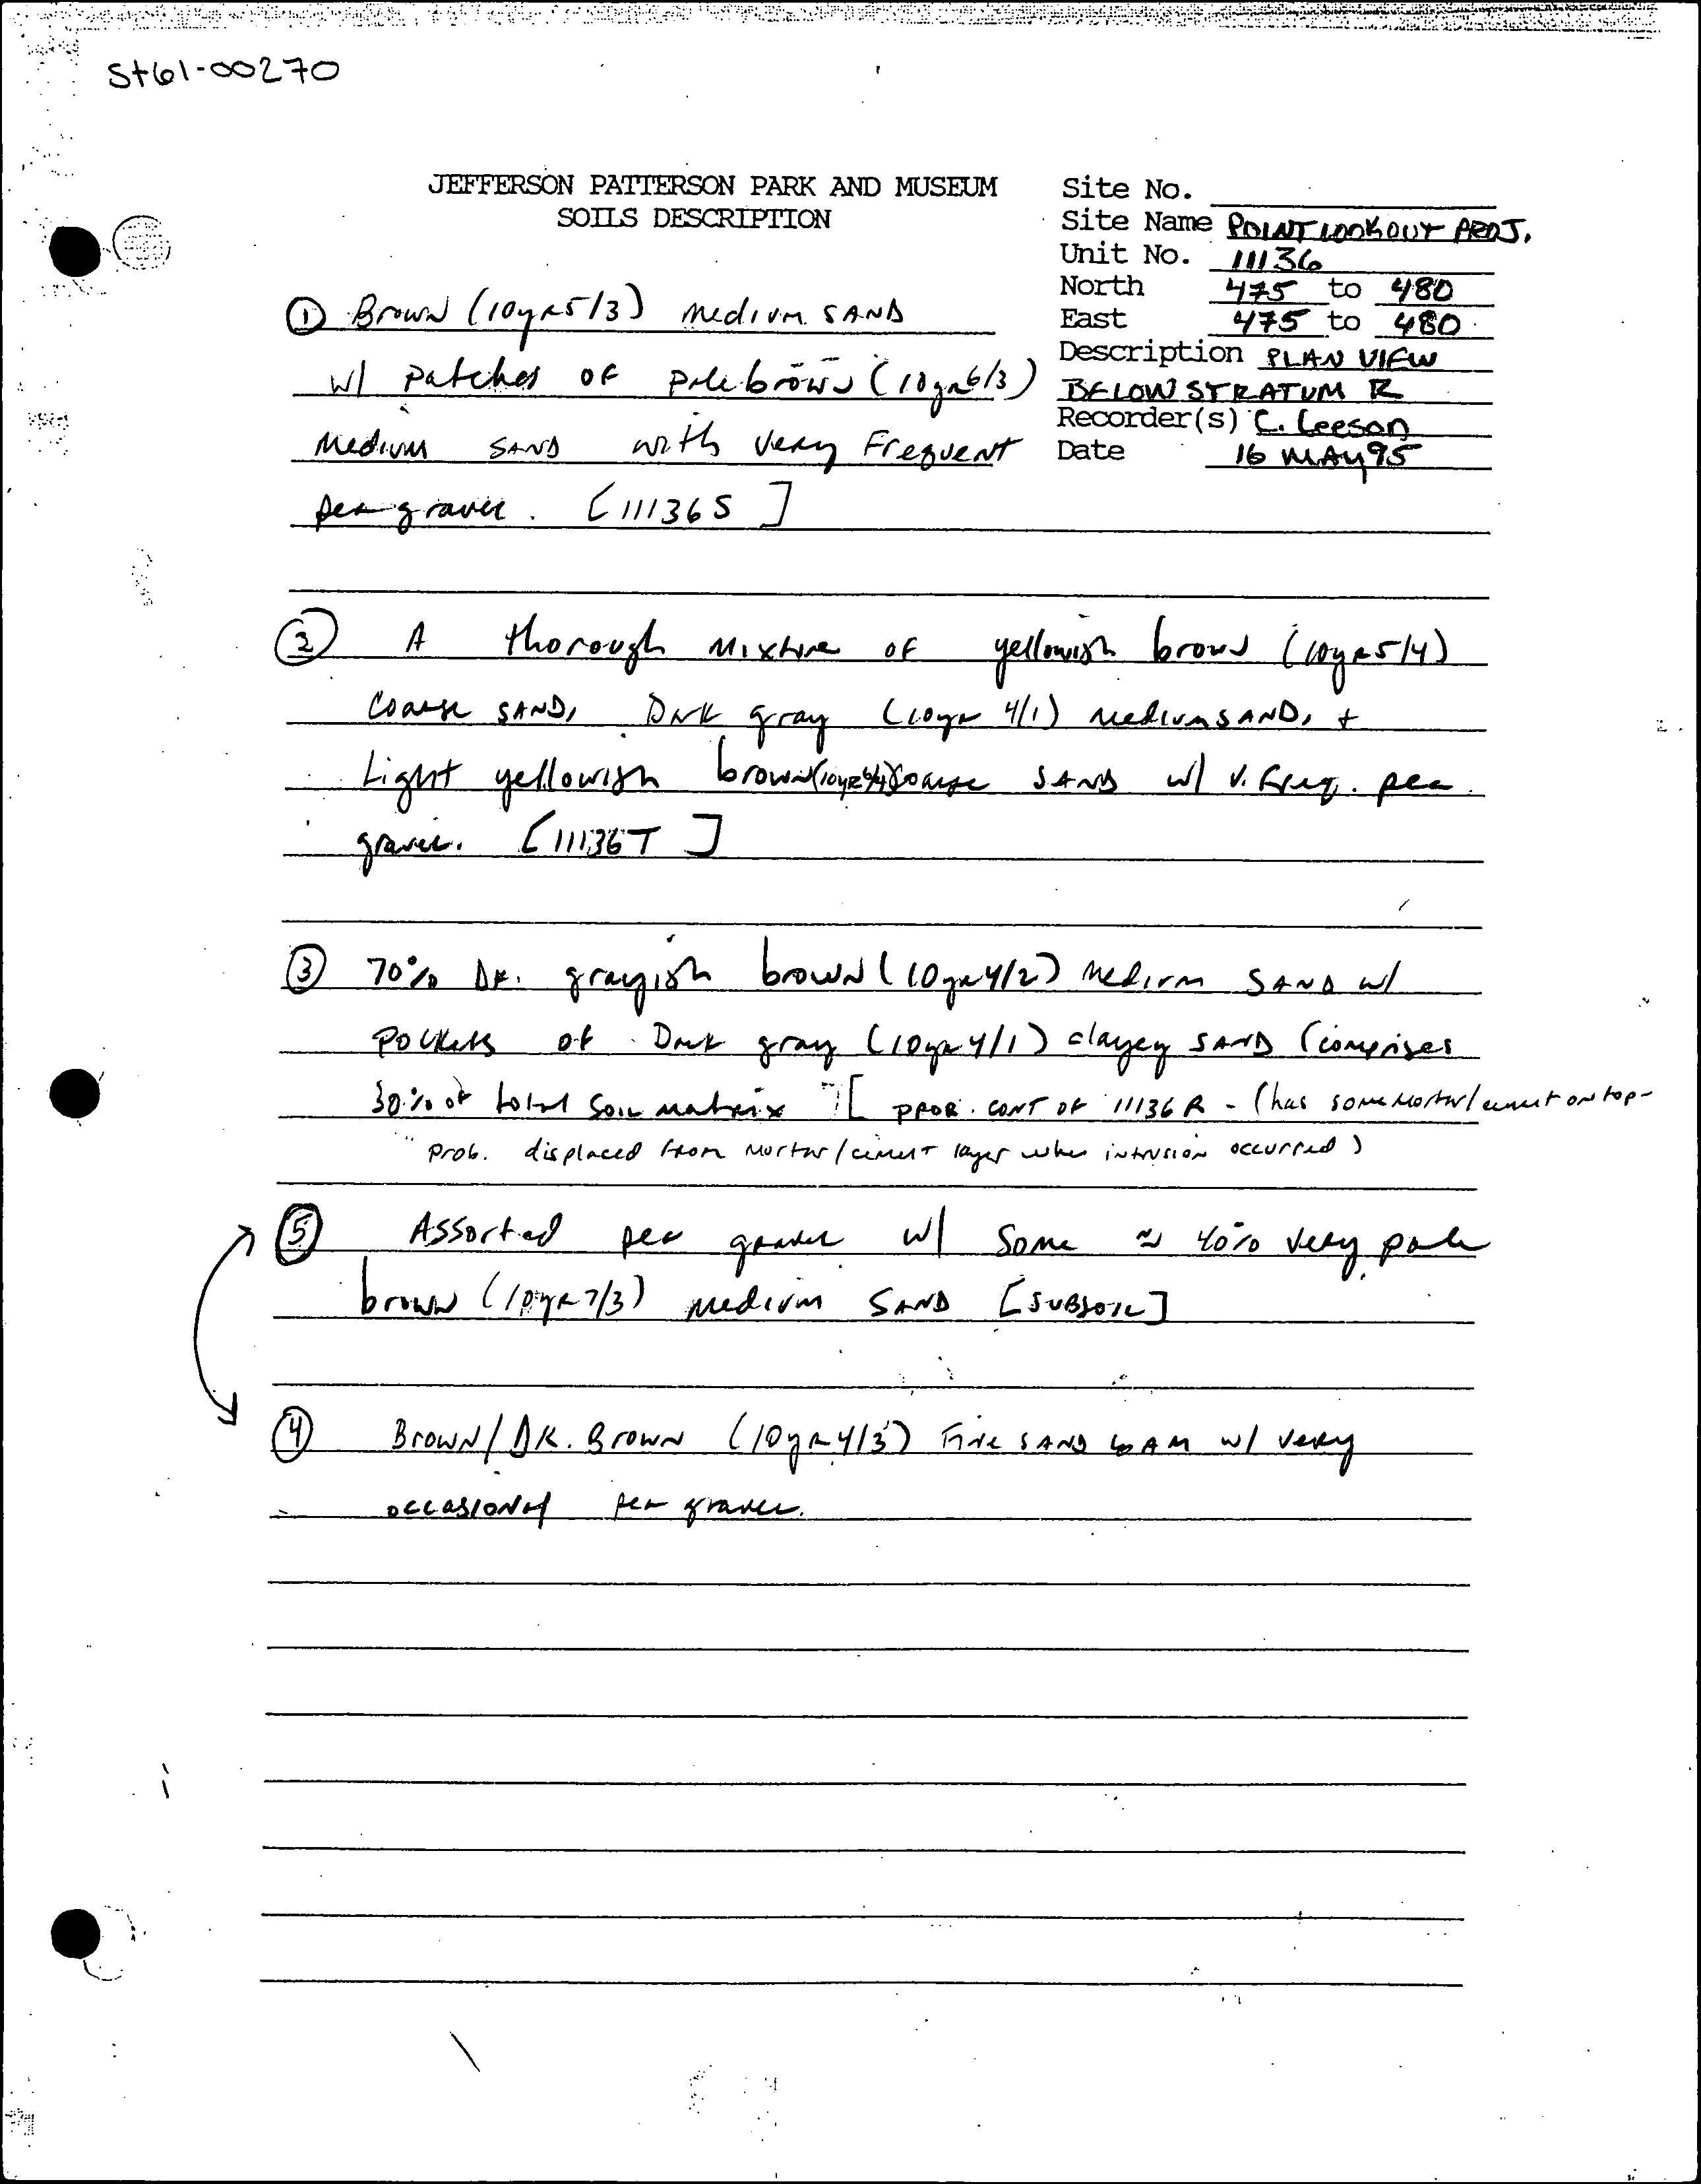 St61-00270
JEFFERSON PATTERSON PARK AND MUSEUM
SOILS DESCRIPTION
Site No.
Site Name POINT LOOKOUT PROJ.
Unit No. 11136
North 475 to 480
East 475 to 480
Description PLAN VIEW
BELOW STRATUM R
Recorder(s) C. Leeson
Date 16 MAY 95
① Brown (10yR5/3) medium SAND
w/ patches OF pale brown (10yR6/3)
Medium SAND with very Frequent
pea gravel. [11136S]
② A thorough mixture OF yellowish brown (10yR5/4)
Coarse SAND, Dark gray (10yR 4/1) medium SAND, +
Light yellowish brown (10yR6/4) coarse SAND w/ v. freq. pea
gravel. [11136T]
③ 70% Dk. grayish brown (10yR4/2) medium SAND w/
pockets of Dark gray (10yR4/1) clayey SAND (comprises
30% of total soil matrix) [PROB. CONT OF 11136R - (has some mortar/cement on top-
prob. displaced from mortar/cement layer when intrusion occurred)
⑤ Assorted pea gravel w/ some ≈ 40% very pale
brown (10yR7/3) medium SAND [SUBSOIL]
④ Brown/DK. Brown (10yR4/3) Fine SAND LOAM w/ very
occasional pea gravel.